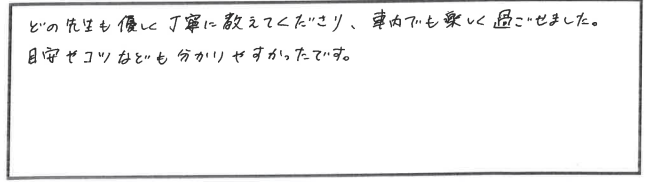 どの先生も優しく丁寧に教えてくださり、車内でも楽しく過ごせました。
目安やコツなども分かりやすかったです。